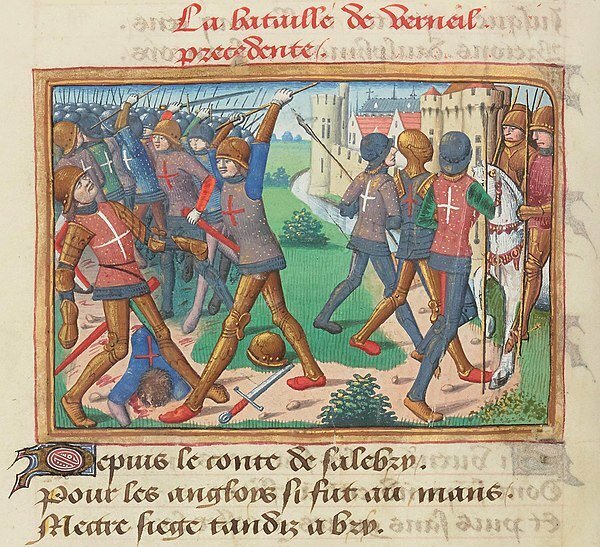 La bataille de verneil
precedente.
Depuis le conte de salebry.
Pour les anglois si fut au mans.
Mectre siege tandiz a bry.